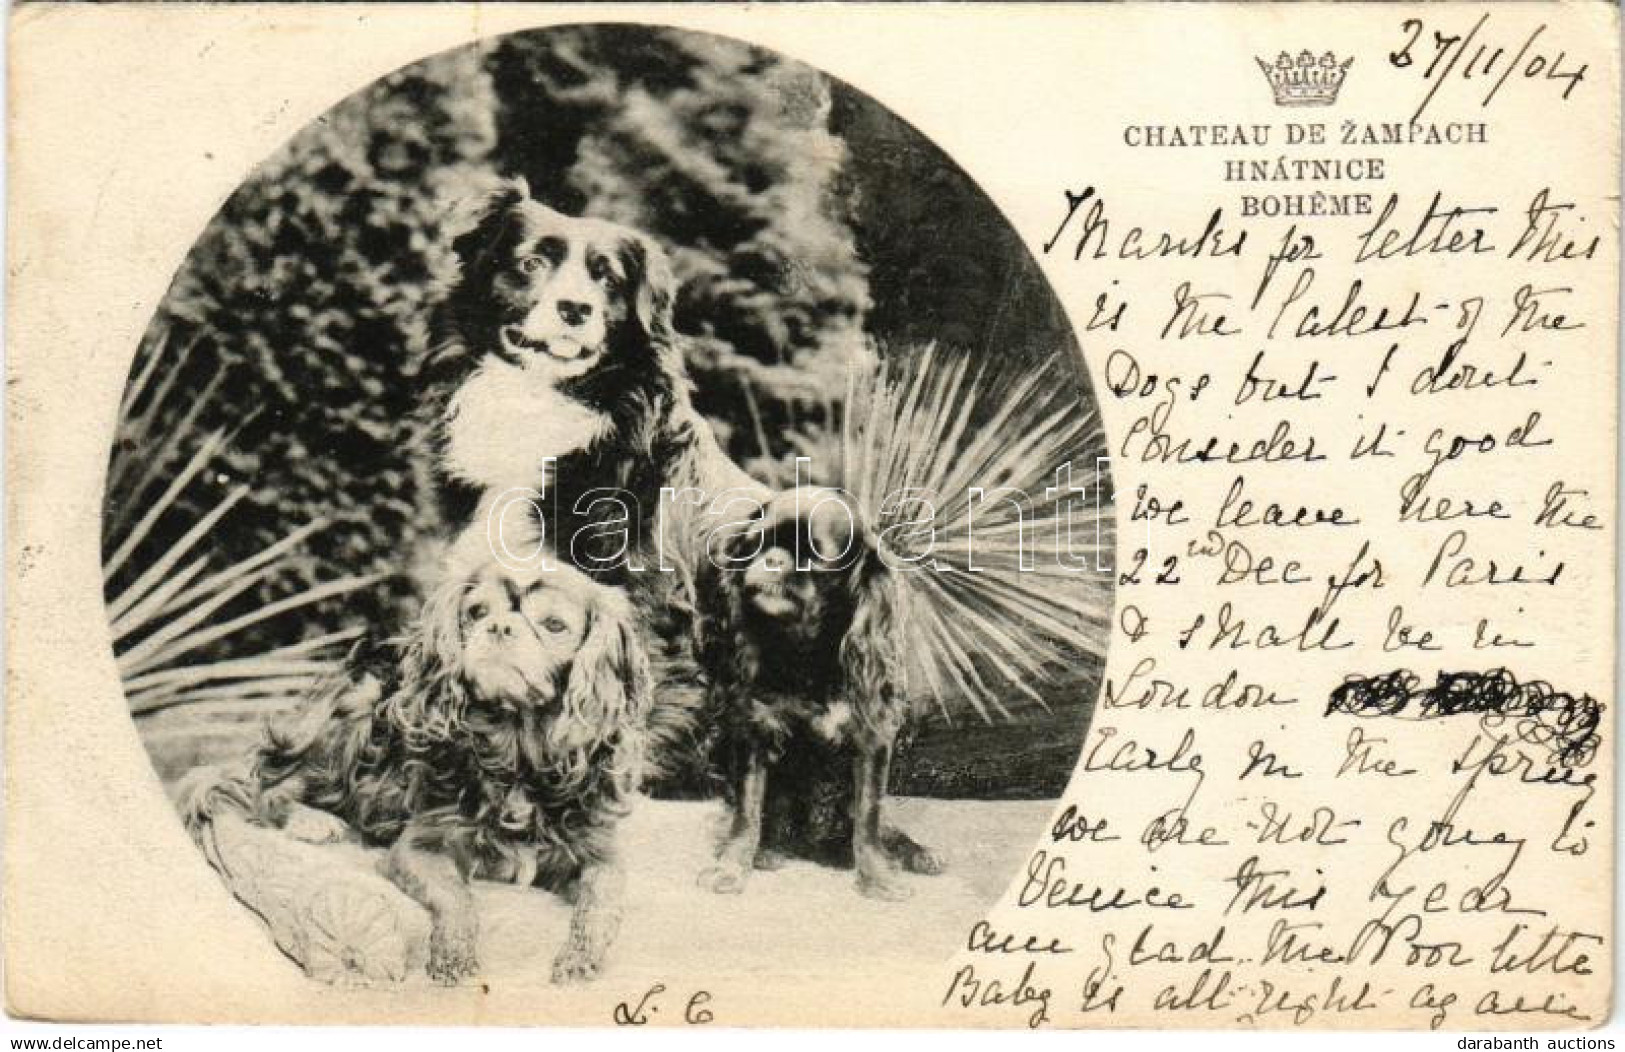 27/11/04
CHATEAU DE ŽAMPACH
HNÁTNICE
BOHÊME
Thanks for letter This
is the latest of the
Dogs but I dont
Consider it good
We leave here the
22nd Dec for Paris
& shall be in
London
Early in the spring
we are not going to
Venice this year
am glad the Poor little
Baby is all right again
L. C
darabanth
darabanth auctions
www.delcampe.net/en/